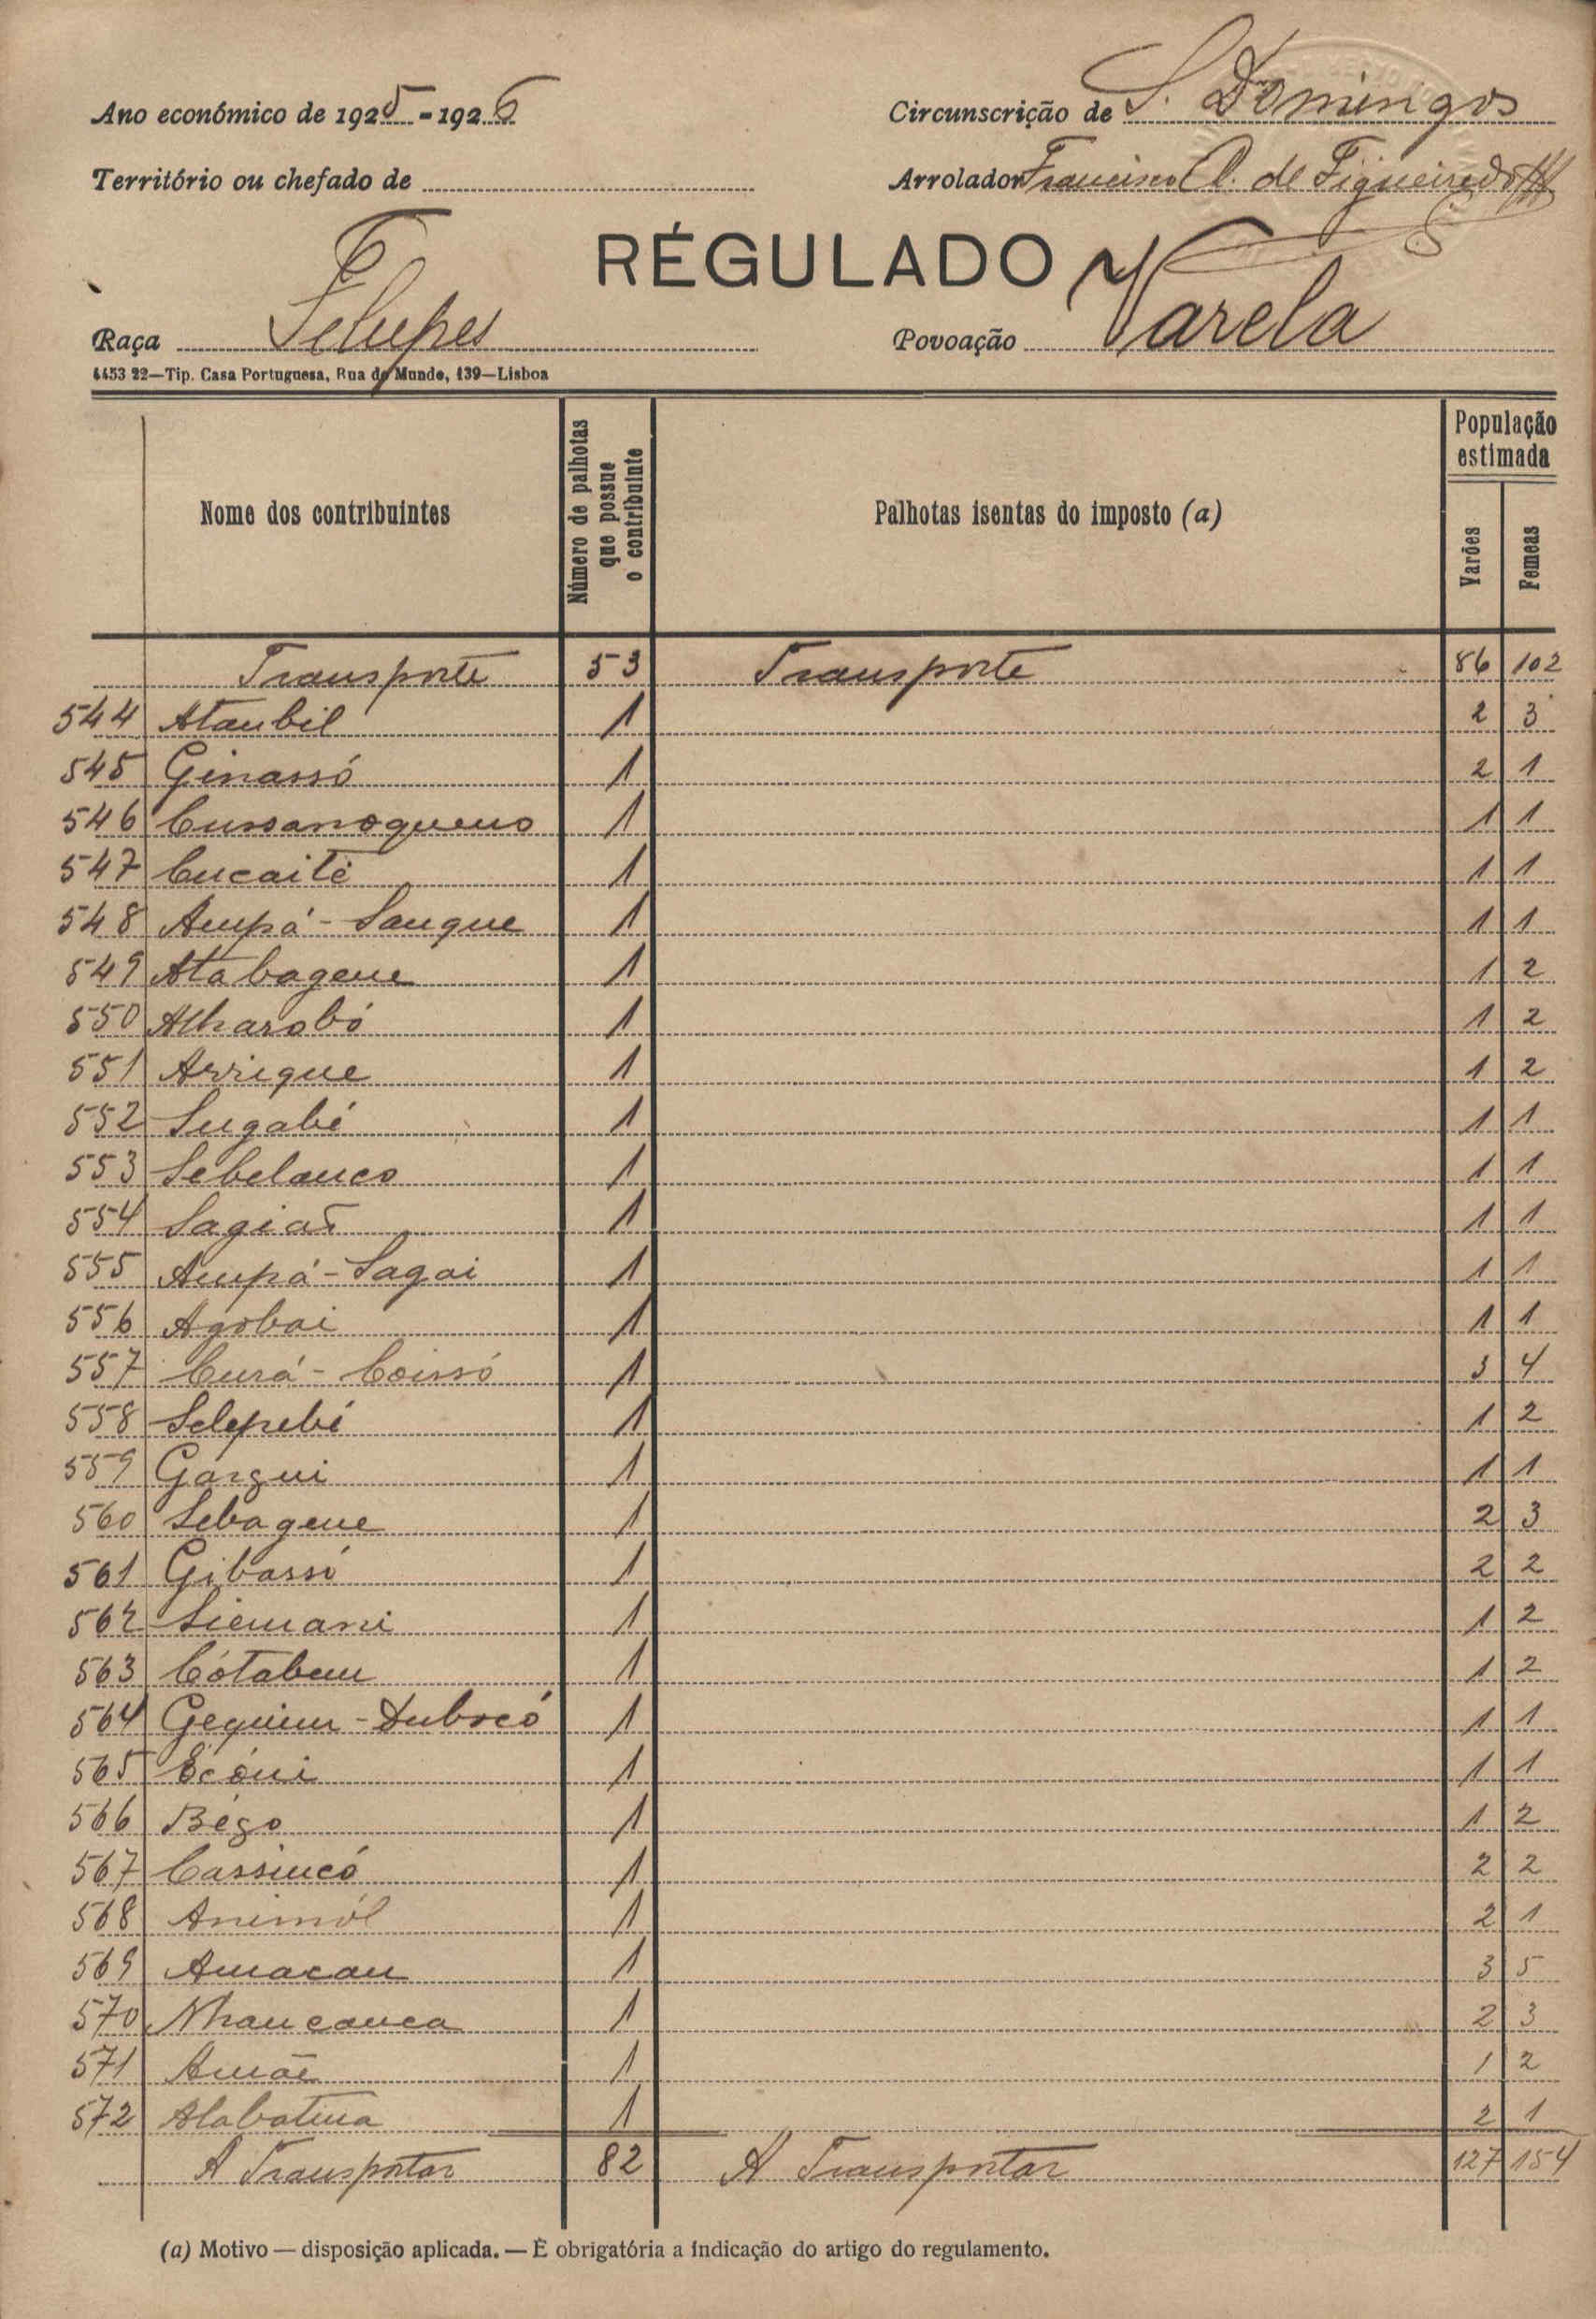 Ano económico de 1925-1926
Circunscrição de S. Domingos
Território ou chefado de
Arrolador Francisco A. de Figueiredo
RÉGULADO
Raça Felupes
Povoação Varela
4453 22—Tip. Casa Portuguesa, Rua do Mundo, 139—Lisboa
Nome dos contribuintes
Número de palhotas que possue o contribuinte
Palhotas isentas do imposto (a)
População estimada
Varões
Femeas
Transporte 53 Transporte 86 102
544 Ataubil 1 2 3
545 Ginassó 1 2 1
546 Cussanogueno 1 1 1
547 Cucaité 1 1 1
548 Ampá-Sangue 1 1 1
549 Atabagene 1 1 2
550 Alharobó 1 1 2
551 Arrigue 1 1 2
552 Sugabé 1 1 1
553 Sebelanco 1 1 1
554 Sagiat 1 1 1
555 Ampá-Sagai 1 1 1
556 Agobai 1 1 1
557 Curá-Coissó 1 3 4
558 Selepebé 1 1 2
559 Gargui 1 1 1
560 Sebagene 1 2 3
561 Gibassó 1 2 2
562 Siemani 1 1 2
563 Cótabem 1 1 2
564 Gequim-Dubocó 1 1 1
565 Ecóni 1 1 1
566 Bégo 1 1 2
567 Cassincó 1 2 2
568 Animól 1 2 1
569 Amacau 1 3 5
570 Nhancanca 1 2 3
571 Amãe 1 1 2
572 Alabatina 1 2 1
A Transportar 82 A Transportar 127 154
(a) Motivo — disposição aplicada. — É obrigatória a indicação do artigo do regulamento.